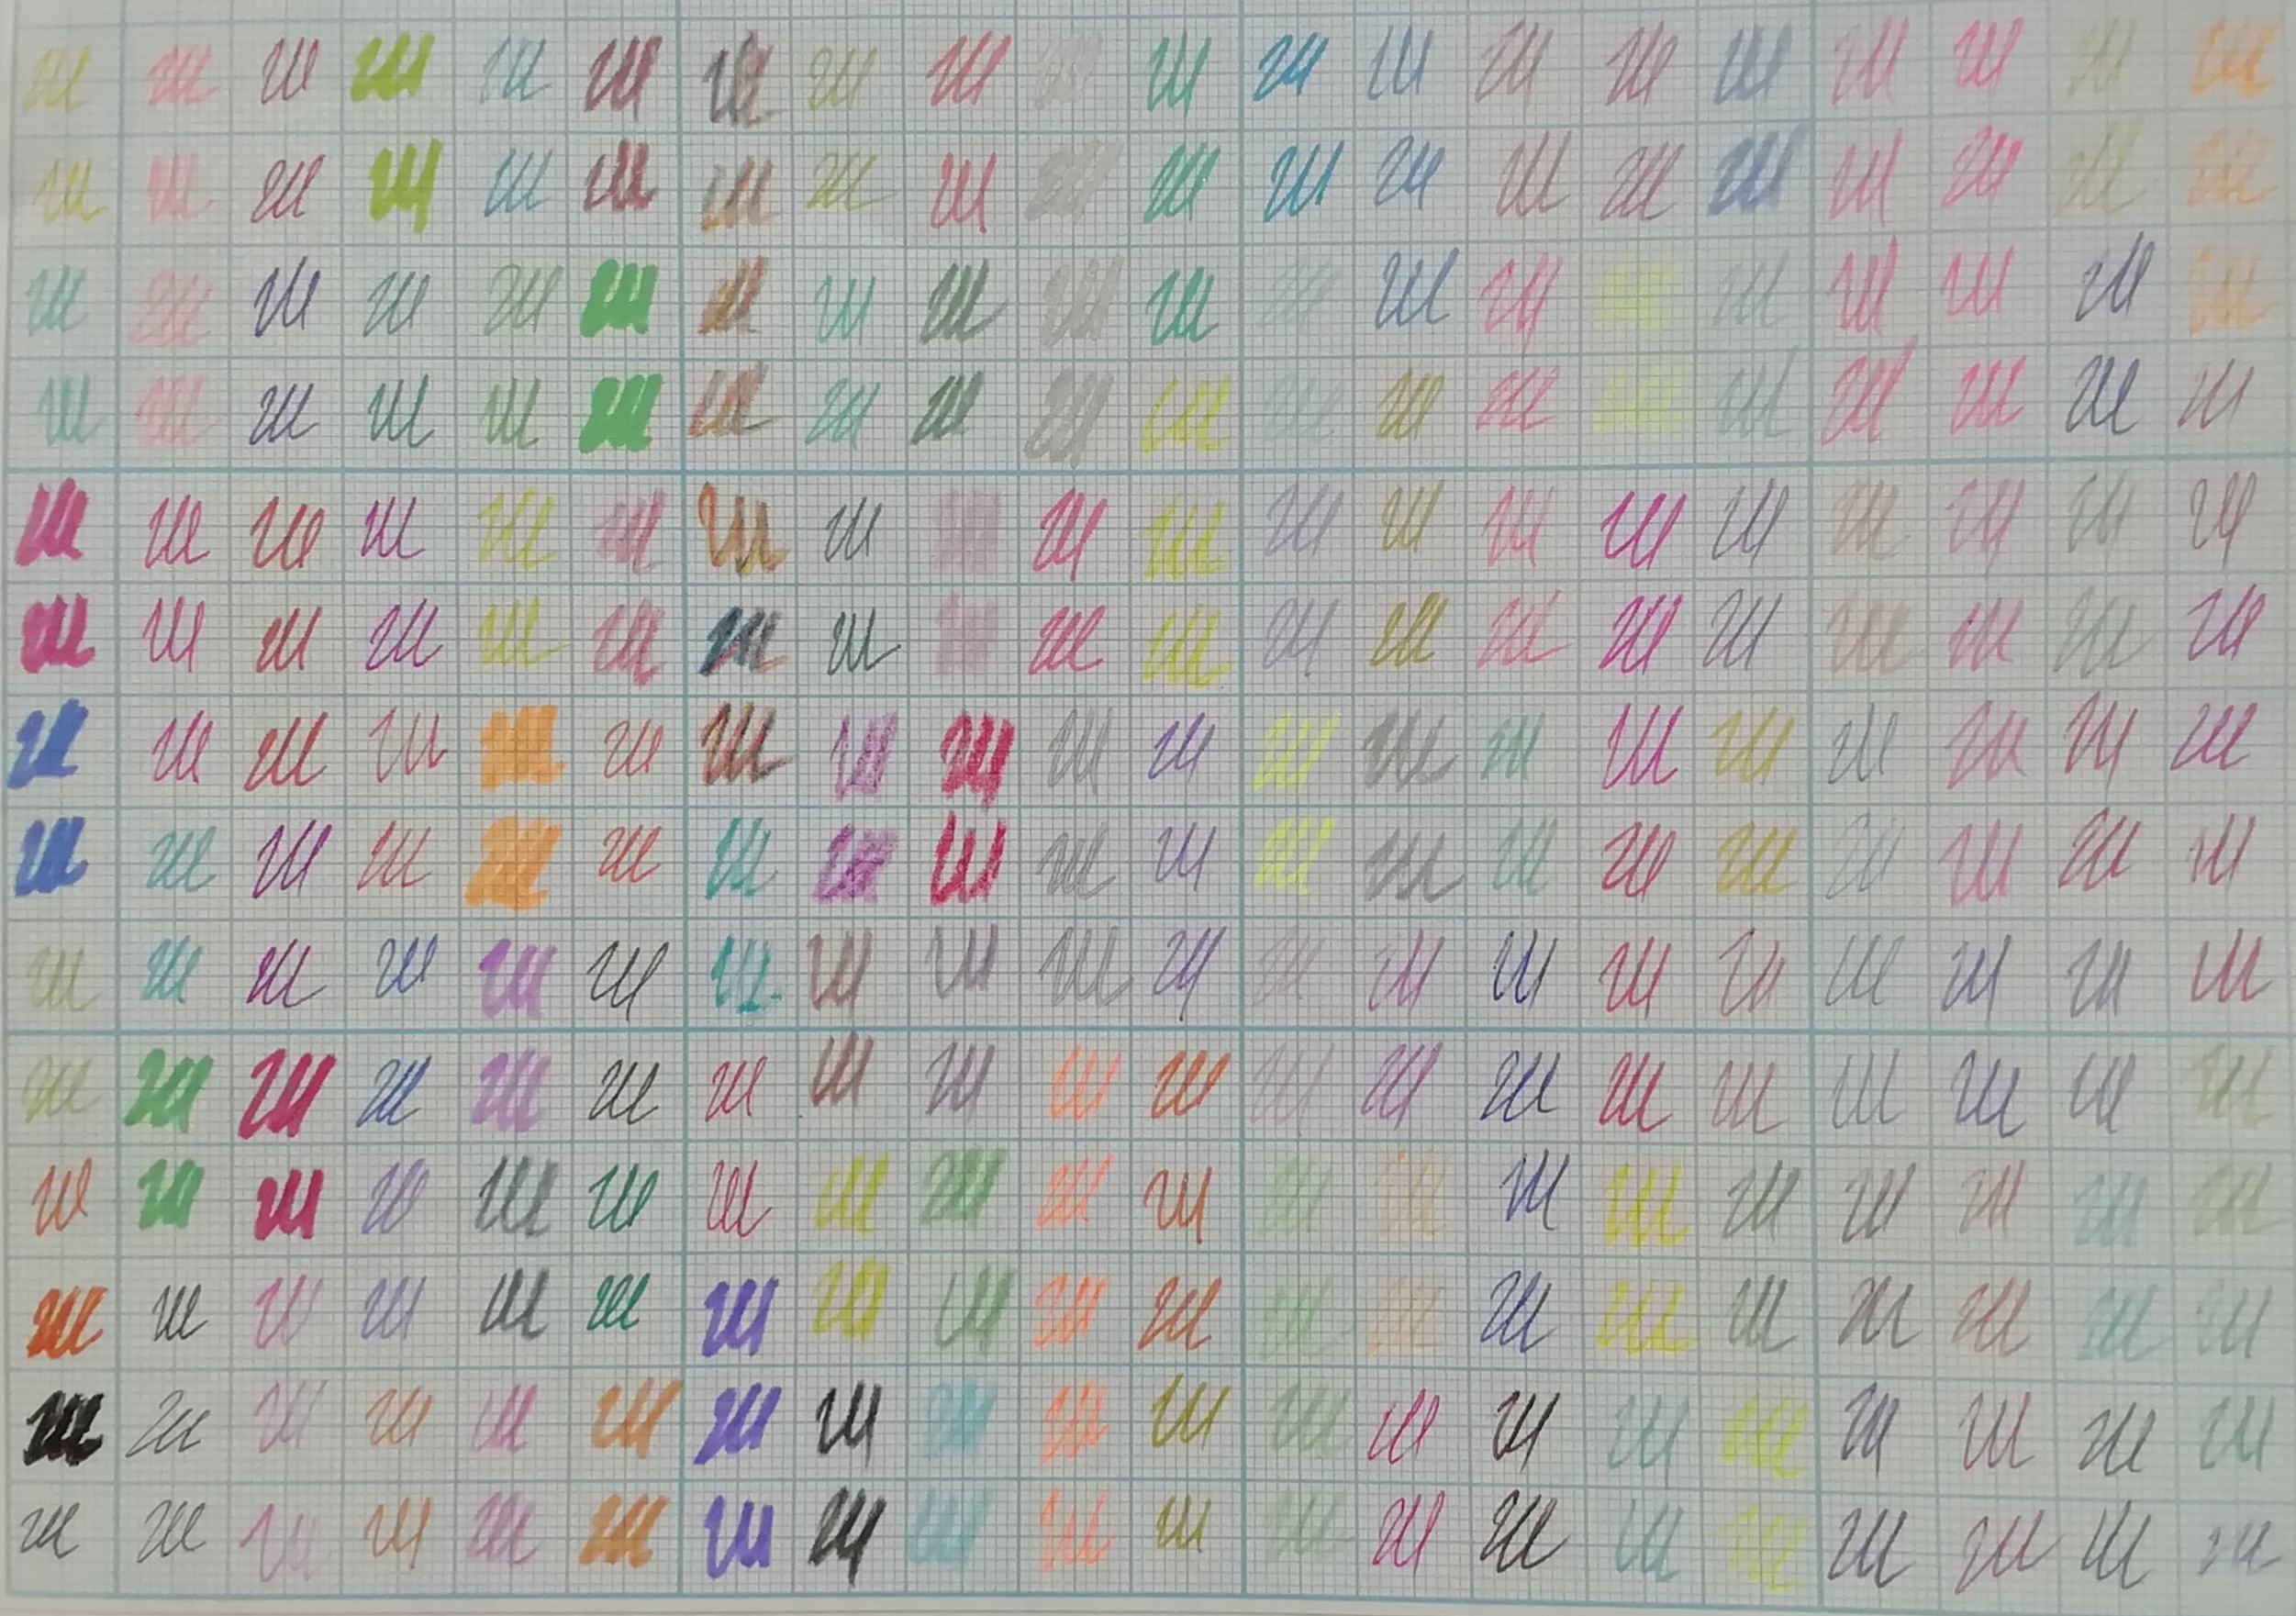 ш ш ш ш ш ш ш ш ш ш ш ш ш ш ш ш ш ш ш ш
ш ш ш ш ш ш ш ш ш ш ш ш ш ш ш ш ш ш ш ш
ш ш ш ш ш ш ш ш ш ш ш ш ш ш ш ш ш ш ш ш
ш ш ш ш ш ш ш ш ш ш ш ш ш ш ш ш ш ш ш ш
ш ш ш ш ш ш ш ш ш ш ш ш ш ш ш ш ш ш ш ш
ш ш ш ш ш ш ш ш ш ш ш ш ш ш ш ш ш ш ш ш
ш ш ш ш ш ш ш ш ш ш ш ш ш ш ш ш ш ш ш ш
ш ш ш ш ш ш ш ш ш ш ш ш ш ш ш ш ш ш ш ш
ш ш ш ш ш ш ш ш ш ш ш ш ш ш ш ш ш ш ш ш
ш ш ш ш ш ш ш ш ш ш ш ш ш ш ш ш ш ш ш ш
ш ш ш ш ш ш ш ш ш ш ш ш ш ш ш ш ш ш ш ш
ш ш ш ш ш ш ш ш ш ш ш ш ш ш ш ш ш ш ш ш
ш ш ш ш ш ш ш ш ш ш ш ш ш ш ш ш ш ш ш ш
ш ш ш ш ш ш ш ш ш ш ш ш ш ш ш ш ш ш ш ш